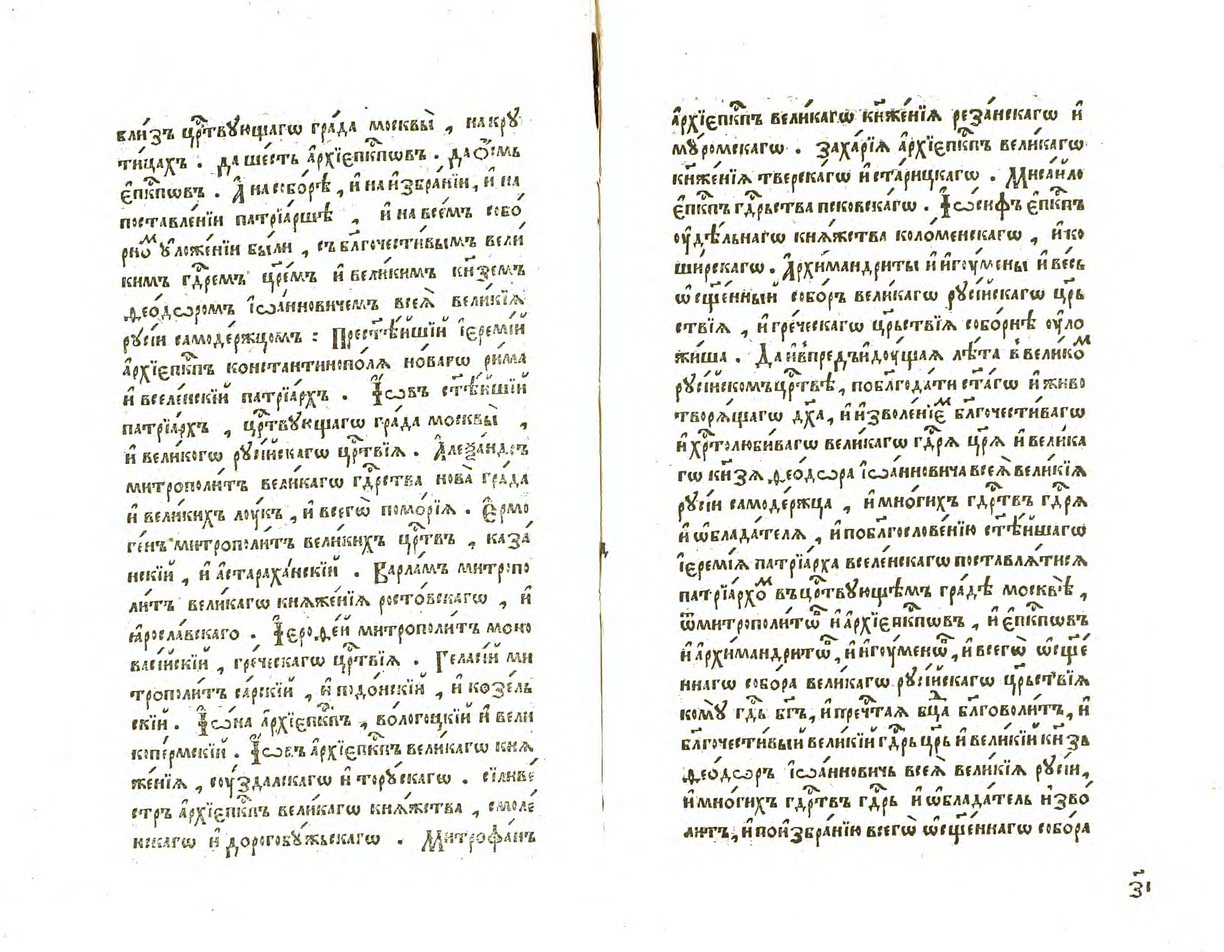 вли́зъ црⷭ҇твꙋющагѡ гра́да москвы̀ , на крꙋ
ти́цахъ . да ше́сть а҆рхїєпⷭ҇кпѡвъ . да ѻ҆́смь
є҆пⷭ҇кпѡвъ . А҆ на собо́рѣ , и҆ на и҆збра́нїи , и҆ на
поставле́нїи патрїа́ршѣ , и҆ на все́мъ собо́
рноⷨ ᲂу҆ложе́нїи бы́ли , съ бл҃гочести́вымъ вели́
кимъ гдⷭ҇ремъ цр҃е́мъ и҆ вели́кимъ кн҃земъ
ѳео́дѡромъ і҆ѡа́нновичемъ всеѧ̀ вели́кїѧ
рꙋсі́и самоде́ржцомъ : Прест҃ѣ́йшїй і҆еремі́й
а҆рхїєпⷭ҇кпъ константинопо́лѧ но́вагѡ ри́ма
и҆ вселе́нскїй патрїа́рхъ . І҆́ѡвъ ст҃ѣ́йшїй
патрїа́рхъ , црⷭ҇твꙋющагѡ гра́да москвы̀ ,
и҆ вели́когѡ рꙋсі́йскагѡ црⷭ҇твїѧ . А҆леѯа́ндръ
митрополи́тъ вели́кагѡ гдⷭ҇рства нова̀ гра́да
и҆ вели́кихъ лꙋ́къ , и҆ всегѡ̀ помо́рїѧ . Є҆рмо
ге́нъ митрополи́тъ вели́кихъ црⷭ҇твъ , каза́
нскїй , и҆ а҆страха́нскїй . Варла́мъ митропо
ли́тъ вели́кагѡ кнѧже́нїѧ росто́вскагѡ , и҆
ꙗ҆росла́вскаго . І҆еро́ѳе́й митрополи́тъ моно
васі́йскїй , гре́ческагѡ црⷭ҇твїѧ . Гела́сїй ми
трополи́тъ са́рскїй , и҆ подо́нскїй , и҆ козе́ль
скїй . І҆ѡ́на а҆рхїєпⷭ҇кпъ , вологоцкїй и҆ вели
копе́рмскїй . І҆́ѡвъ а҆рхїєпⷭ҇кпъ вели́кагѡ кнѧ
же́нїѧ , сᲂу́здалскагѡ и҆ торꙋ́скагѡ . сїливе́
стръ а҆рхїєпⷭ҇кпъ вели́кагѡ кнѧ́жства , смоле́
нскагѡ и҆ дорогобꙋ́жьскагѡ . Митрофа́нъ
а҆рхїєпⷭ҇кпъ вели́кагѡ кн҃же́нїѧ реза́нскагѡ и҆
мꙋ́ромскагѡ . Заха́рїѧ а҆рхїєпⷭ҇кпъ вели́кагѡ
кн҃же́нїѧ тверска́гѡ и҆ ста́рицкагѡ . Мисаи́ло
є҆пⷭ҇кпъ гдⷭ҇рьства пско́вскагѡ . І҆ѡ́сифъ є҆пⷭ҇кпъ
ᲂу҆дѣ́льнагѡ кнѧ́жства коло́менскагѡ , и҆ ко
ши́рскагѡ . А҆рхимандри́ты и҆ и҆гꙋ́мены и҆ ве́сь
ѡ҆сщ҃е́нный собо́ръ вели́кагѡ рꙋсі́йскагѡ цр҃ь
ствїѧ , и҆ гре́ческагѡ цр҃ьствїѧ собо́рнѣ ᲂу҆ло
жи́ша . Да и҆ впре́дъ и҆дꙋ́щаѧ лѣ́та в вели́коⷨ
рꙋсі́йскомъ црⷭ҇твѣ , по бл҃года́ти ст҃а́гѡ и҆ живо
творѧ́щагѡ дх҃а , и҆ и҆зволе́нїеⷨ бл҃гочести́вагѡ
и҆ хрⷭ҇толюби́вагѡ вели́кагѡ гдⷭ҇рѧ цр҃ѧ̀ и҆ вели́ка
гѡ кн҃зѧ ѳео́дѡра і҆ѡа́нновича всеѧ̀ вели́кїѧ
рꙋсі́и самоде́ржца , и҆ мно́гихъ гдⷭ҇рствъ гдⷭ҇рѧ
и҆ ѡ҆блада́телѧ , и҆ по бл҃гослове́нїю ст҃ѣ́йшагѡ
і҆еремі́ѧ патрїа́рха вселе́нскагѡ поставлѧ́тисѧ
патрїа́рхоⷨ въ црⷭ҇твꙋющемъ гра́дѣ москвѣ̀ ,
ѿ митрополи́тѡⷡ и҆ а҆рхїєпⷭ҇кпѡвъ , и҆ є҆пⷭ҇кпѡвъ
и҆ а҆рхимандри́тѡⷡ , и҆ и҆гꙋ́менѡⷡ , и҆ всегѡ̀ ѡ҆сщ҃е́
ннагѡ собо́ра вели́кагѡ рꙋсі́йскагѡ цр҃ьствїѧ
комꙋ̀ гдⷭ҇ь бг҃ъ , и҆ пречⷭ҇таѧ бцⷣа бл҃говоли́тъ , и҆
бл҃гочести́вый вели́кїй гдⷭ҇рь цр҃ь и҆ вели́кїй кн҃зь
ѳео́дѡръ і҆ѡа́нновичь всеѧ̀ вели́кїѧ рꙋсі́и ,
и҆ мно́гихъ гдⷭ҇рствъ гдⷭ҇рь и҆ ѡ҆блада́тель и҆зво́
литъ , и҆ по и҆збра́нїю всегѡ̀ ѡ҆сщ҃е́ннагѡ собо́ра
з҃і